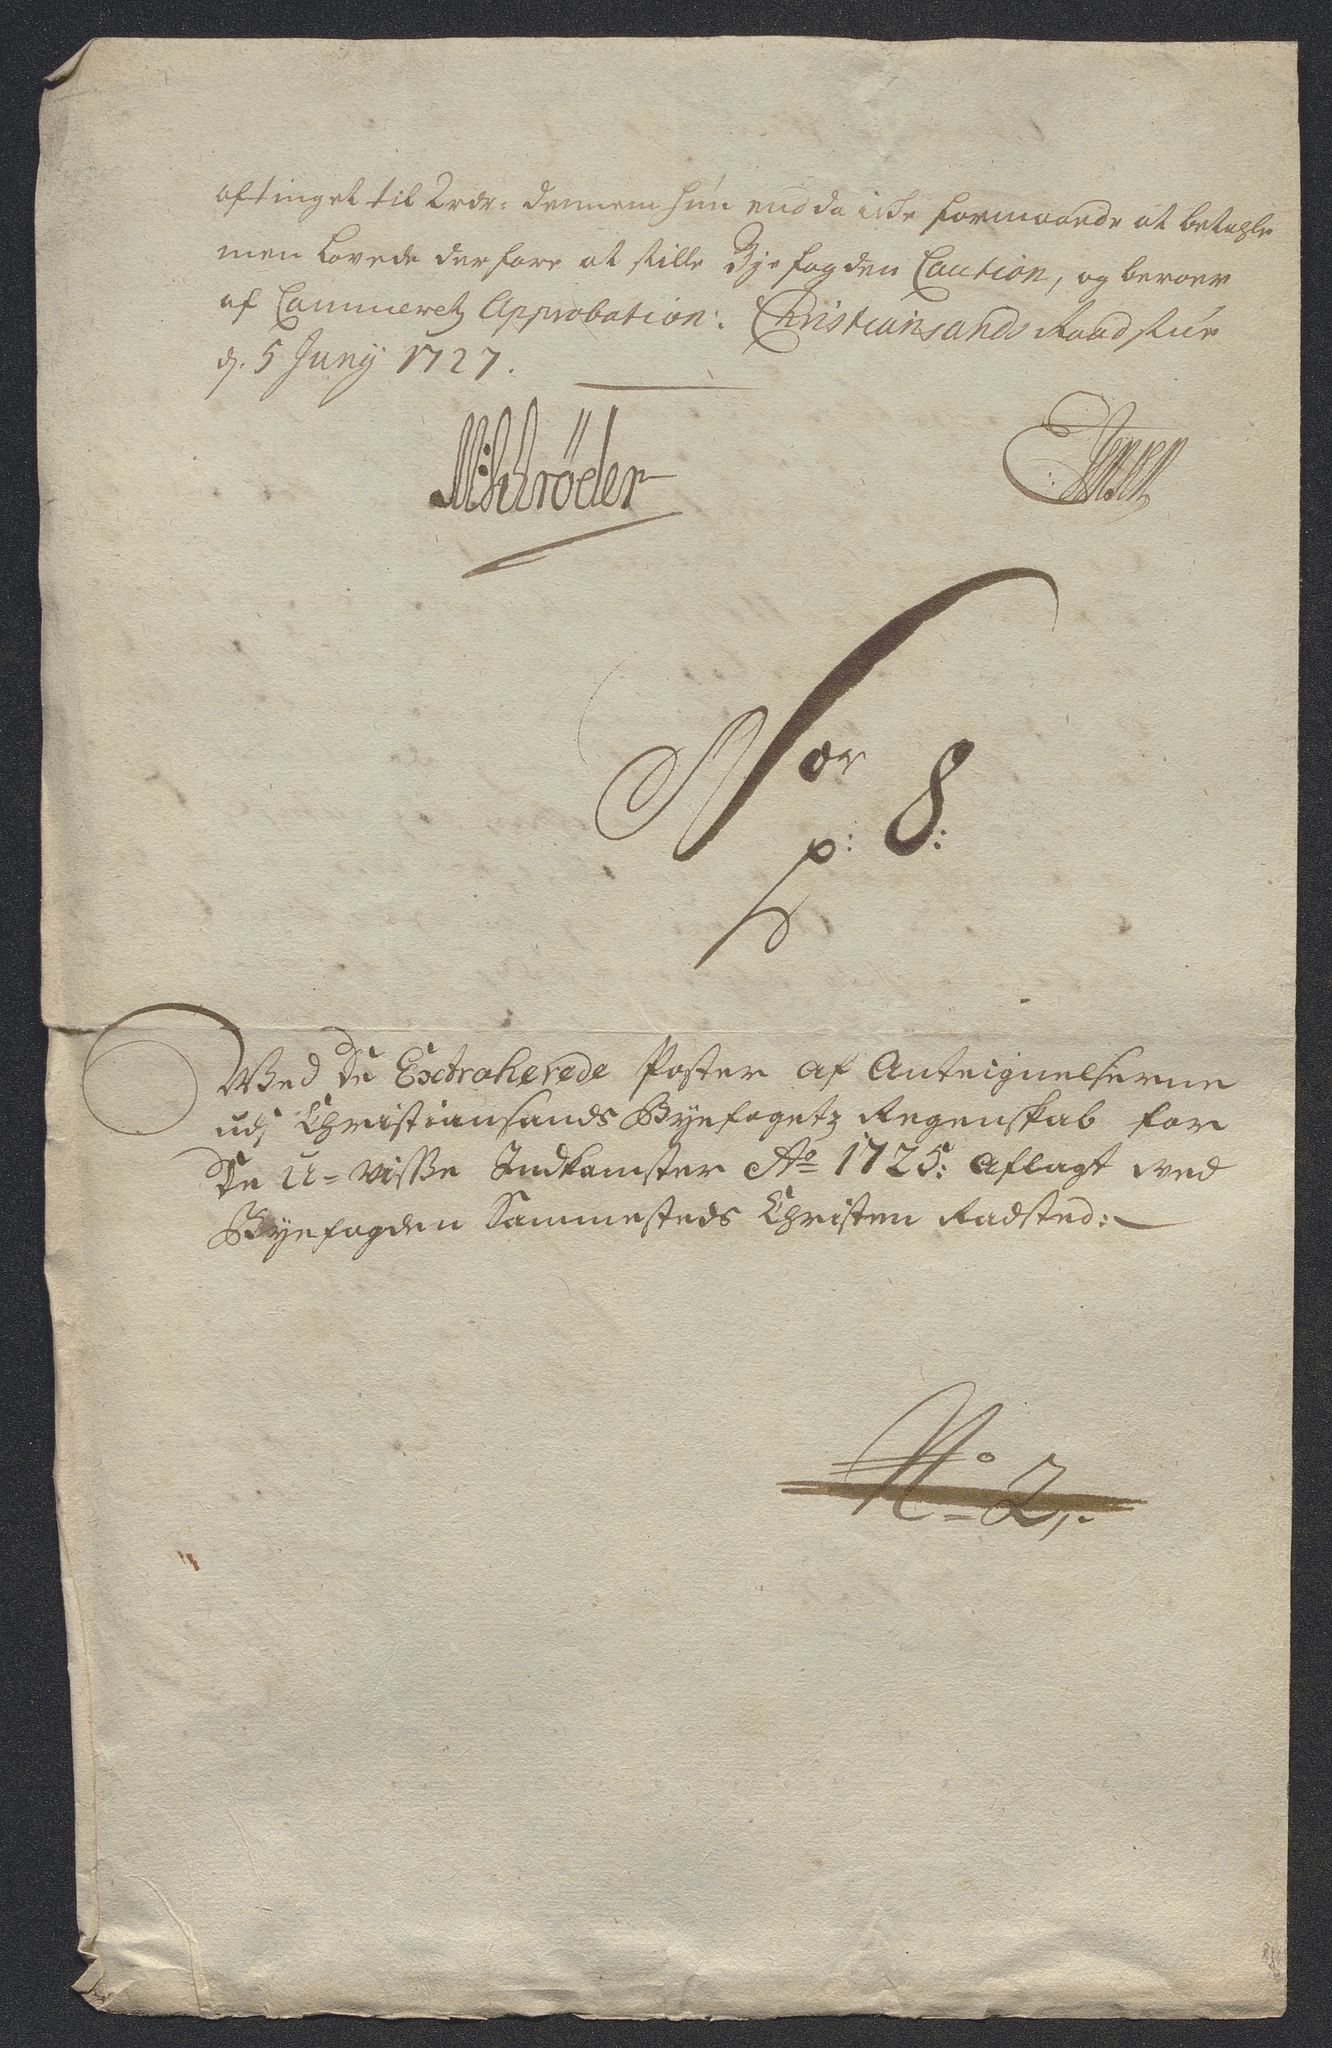 aftinget til 2 rdr: dennem hun end da icke formaaede at betahle
men lovede derfore at stille Byefogden Caution, og beroer
af Cammeretz Approbation: Christiansands Raadstue
d. 5 Junij 1727.
MSchrøder
Nor 8:
p:
Ved de Extraherede Poster af Anteignelserne
udj Christiansands Byefogetz Regenskab for
de U-visse Indkomster Ao 1725: aflagt ved
Byefogden Sammesteds Christen Radsted:
No 2,